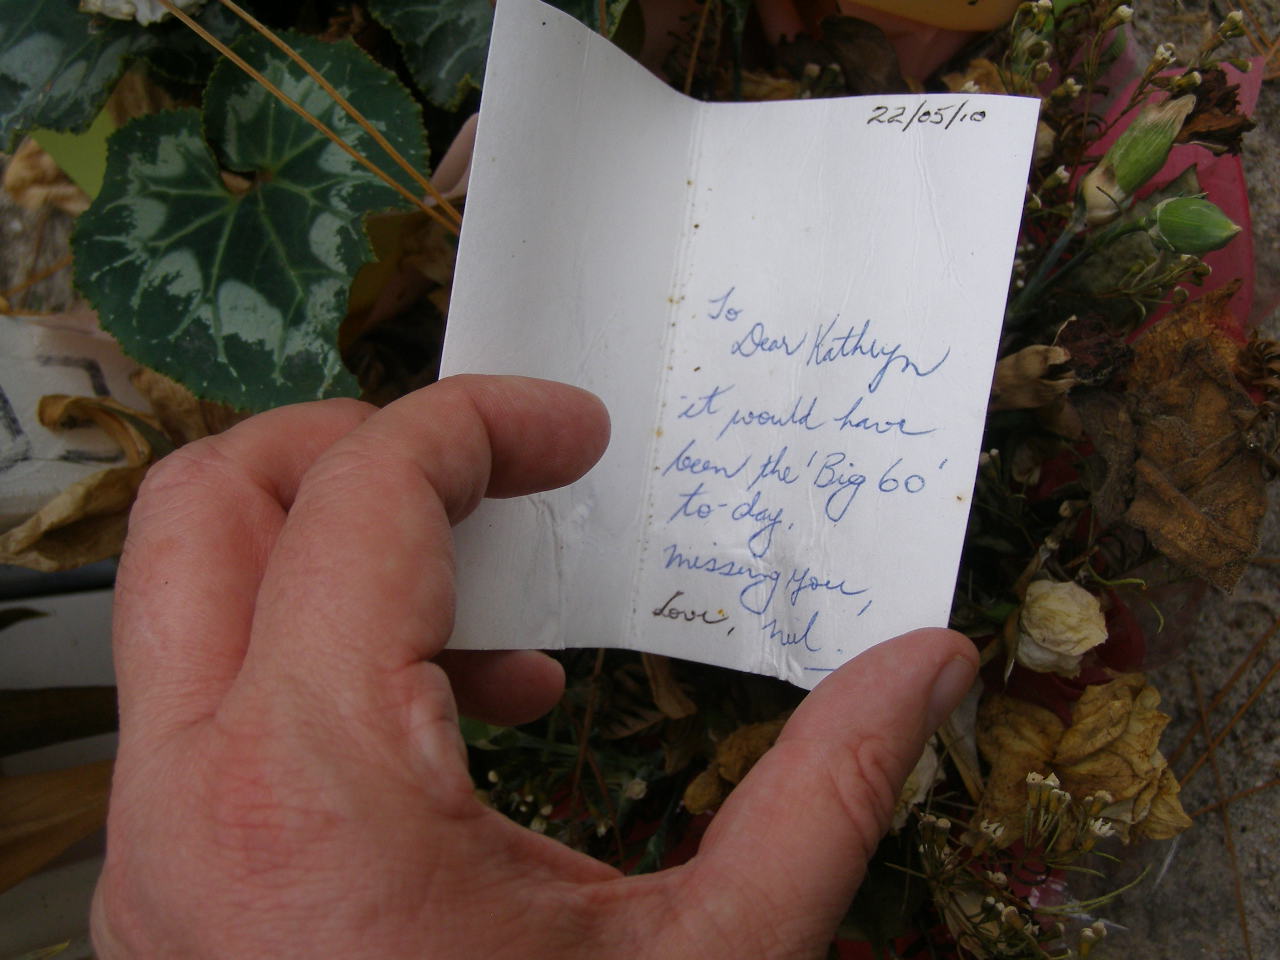 22/05/10
To
Dear Kathryn
it would have
been the 'Big 60'
to-day,
missing you,
Love,